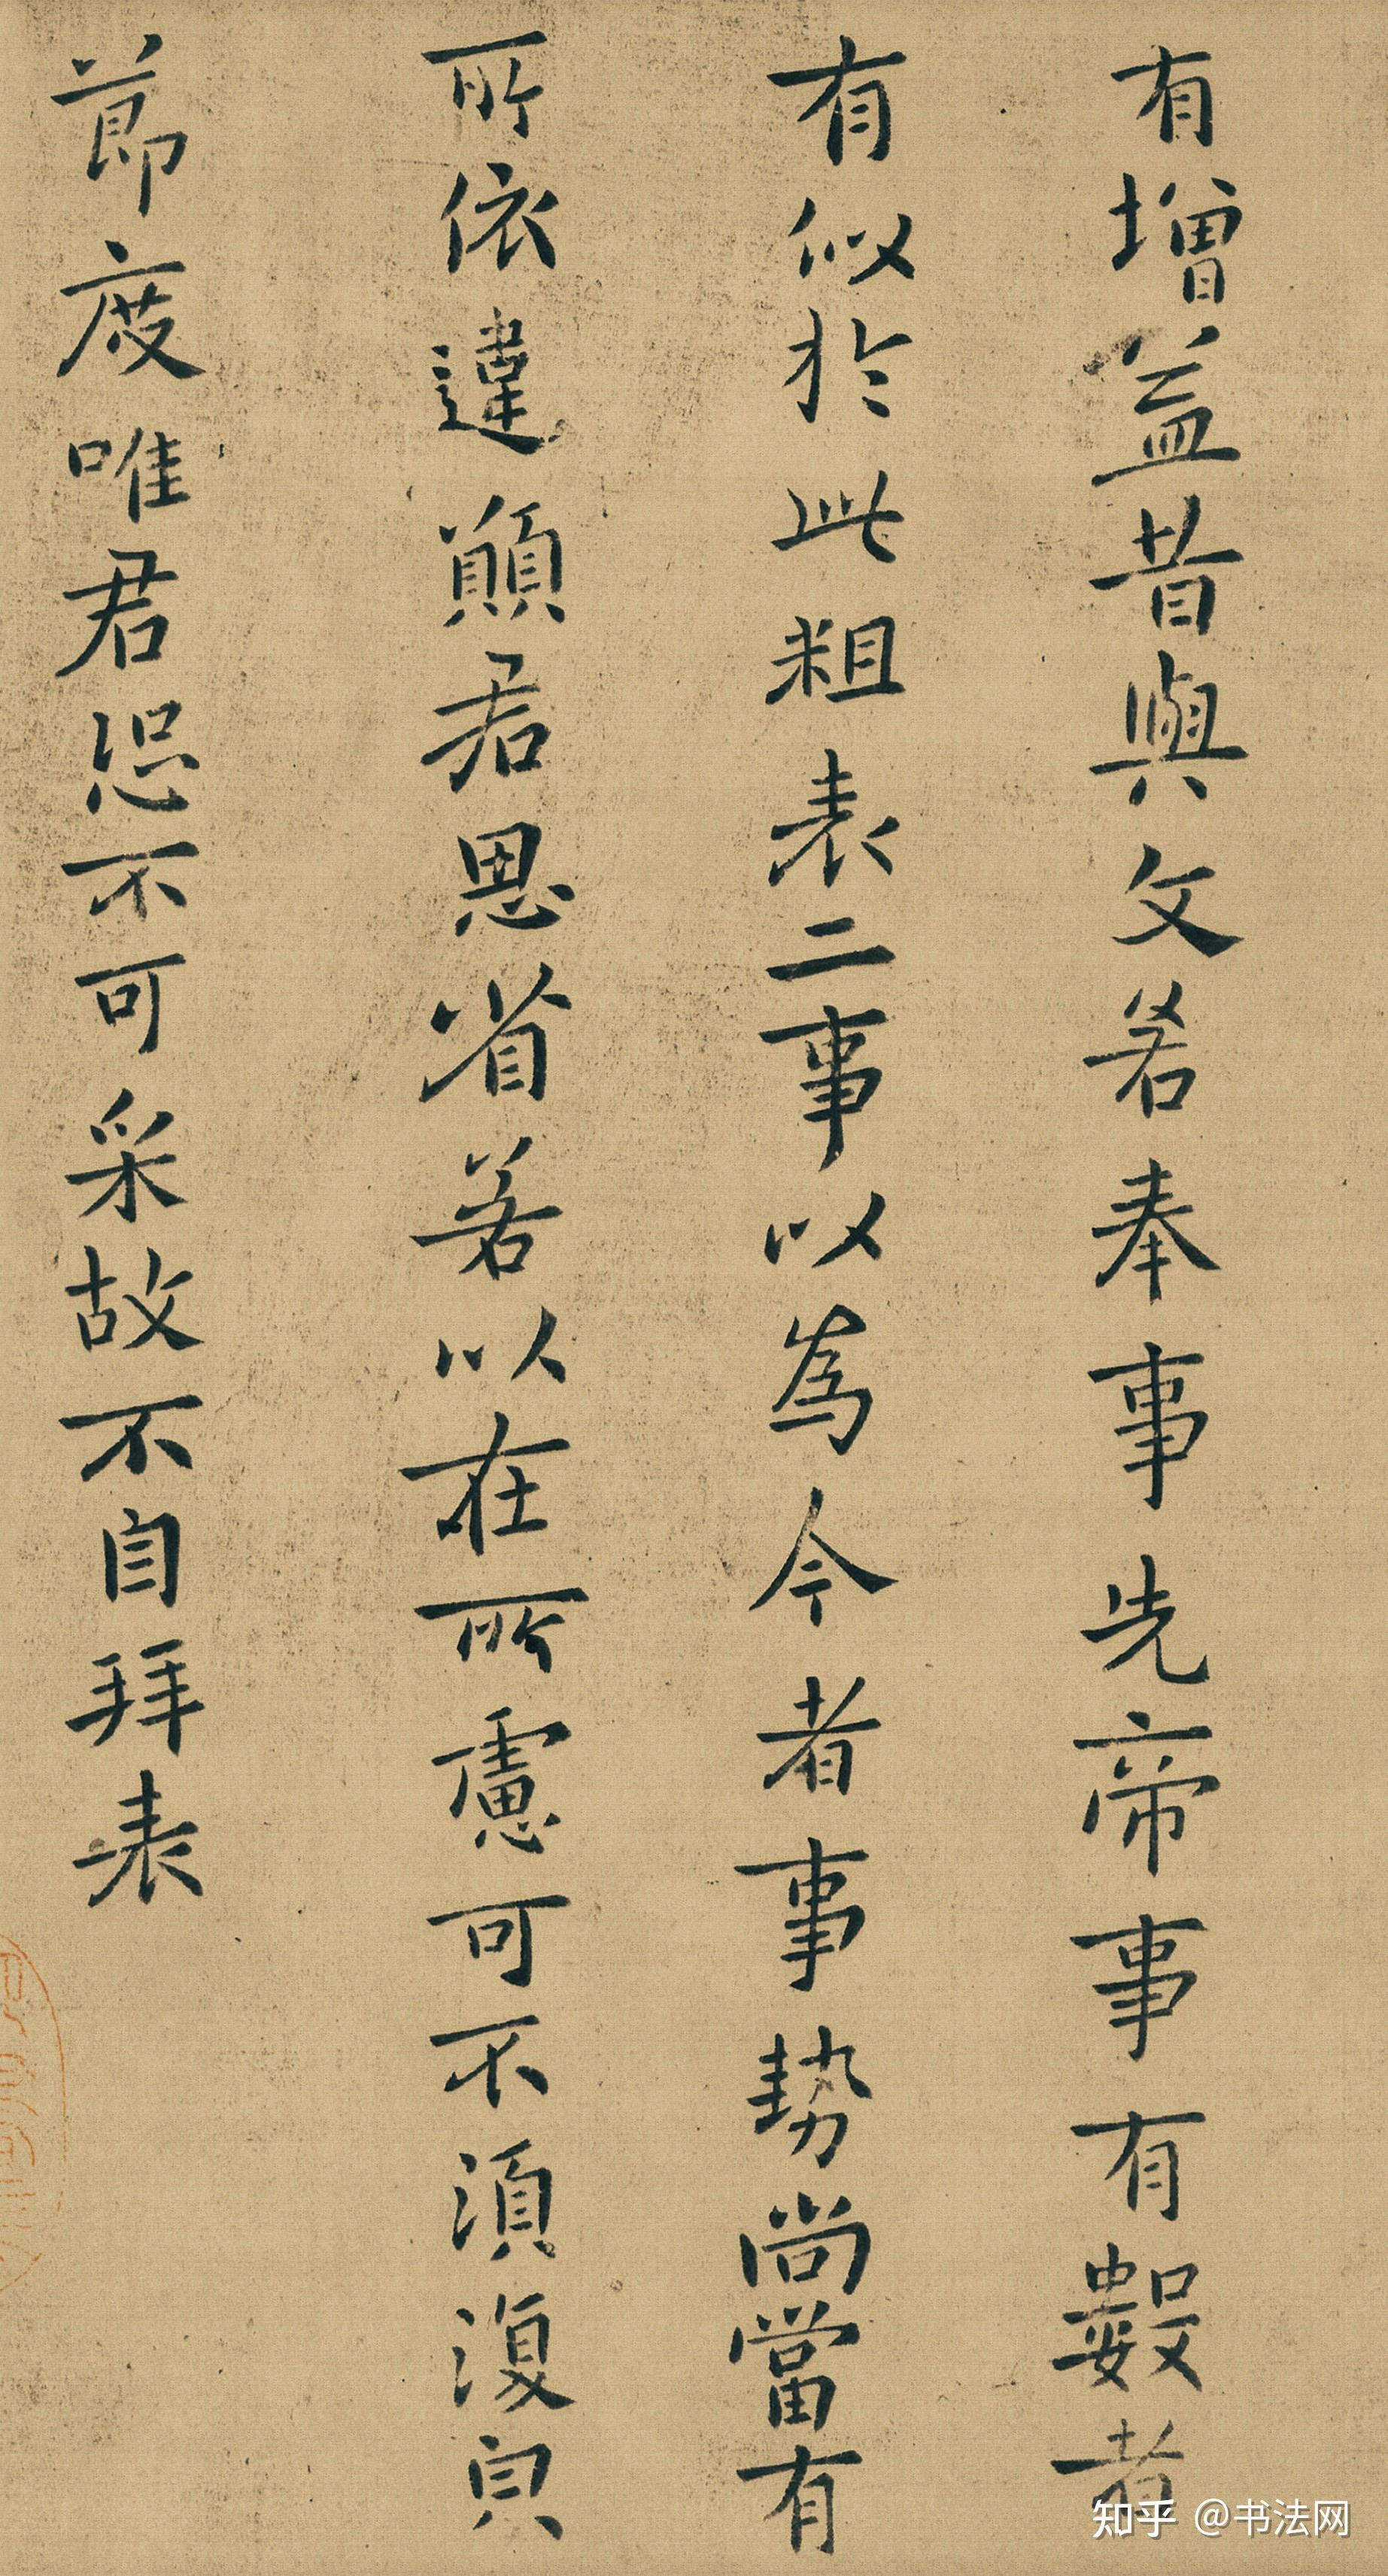 有增益昔與文若奉事先帝事有數者
有似於此粗表二事以為今者事勢尚當有
所依違願君思省若以在所慮可不須復皃
節度唯君恐不可采故不自拜表
知乎 @书法网